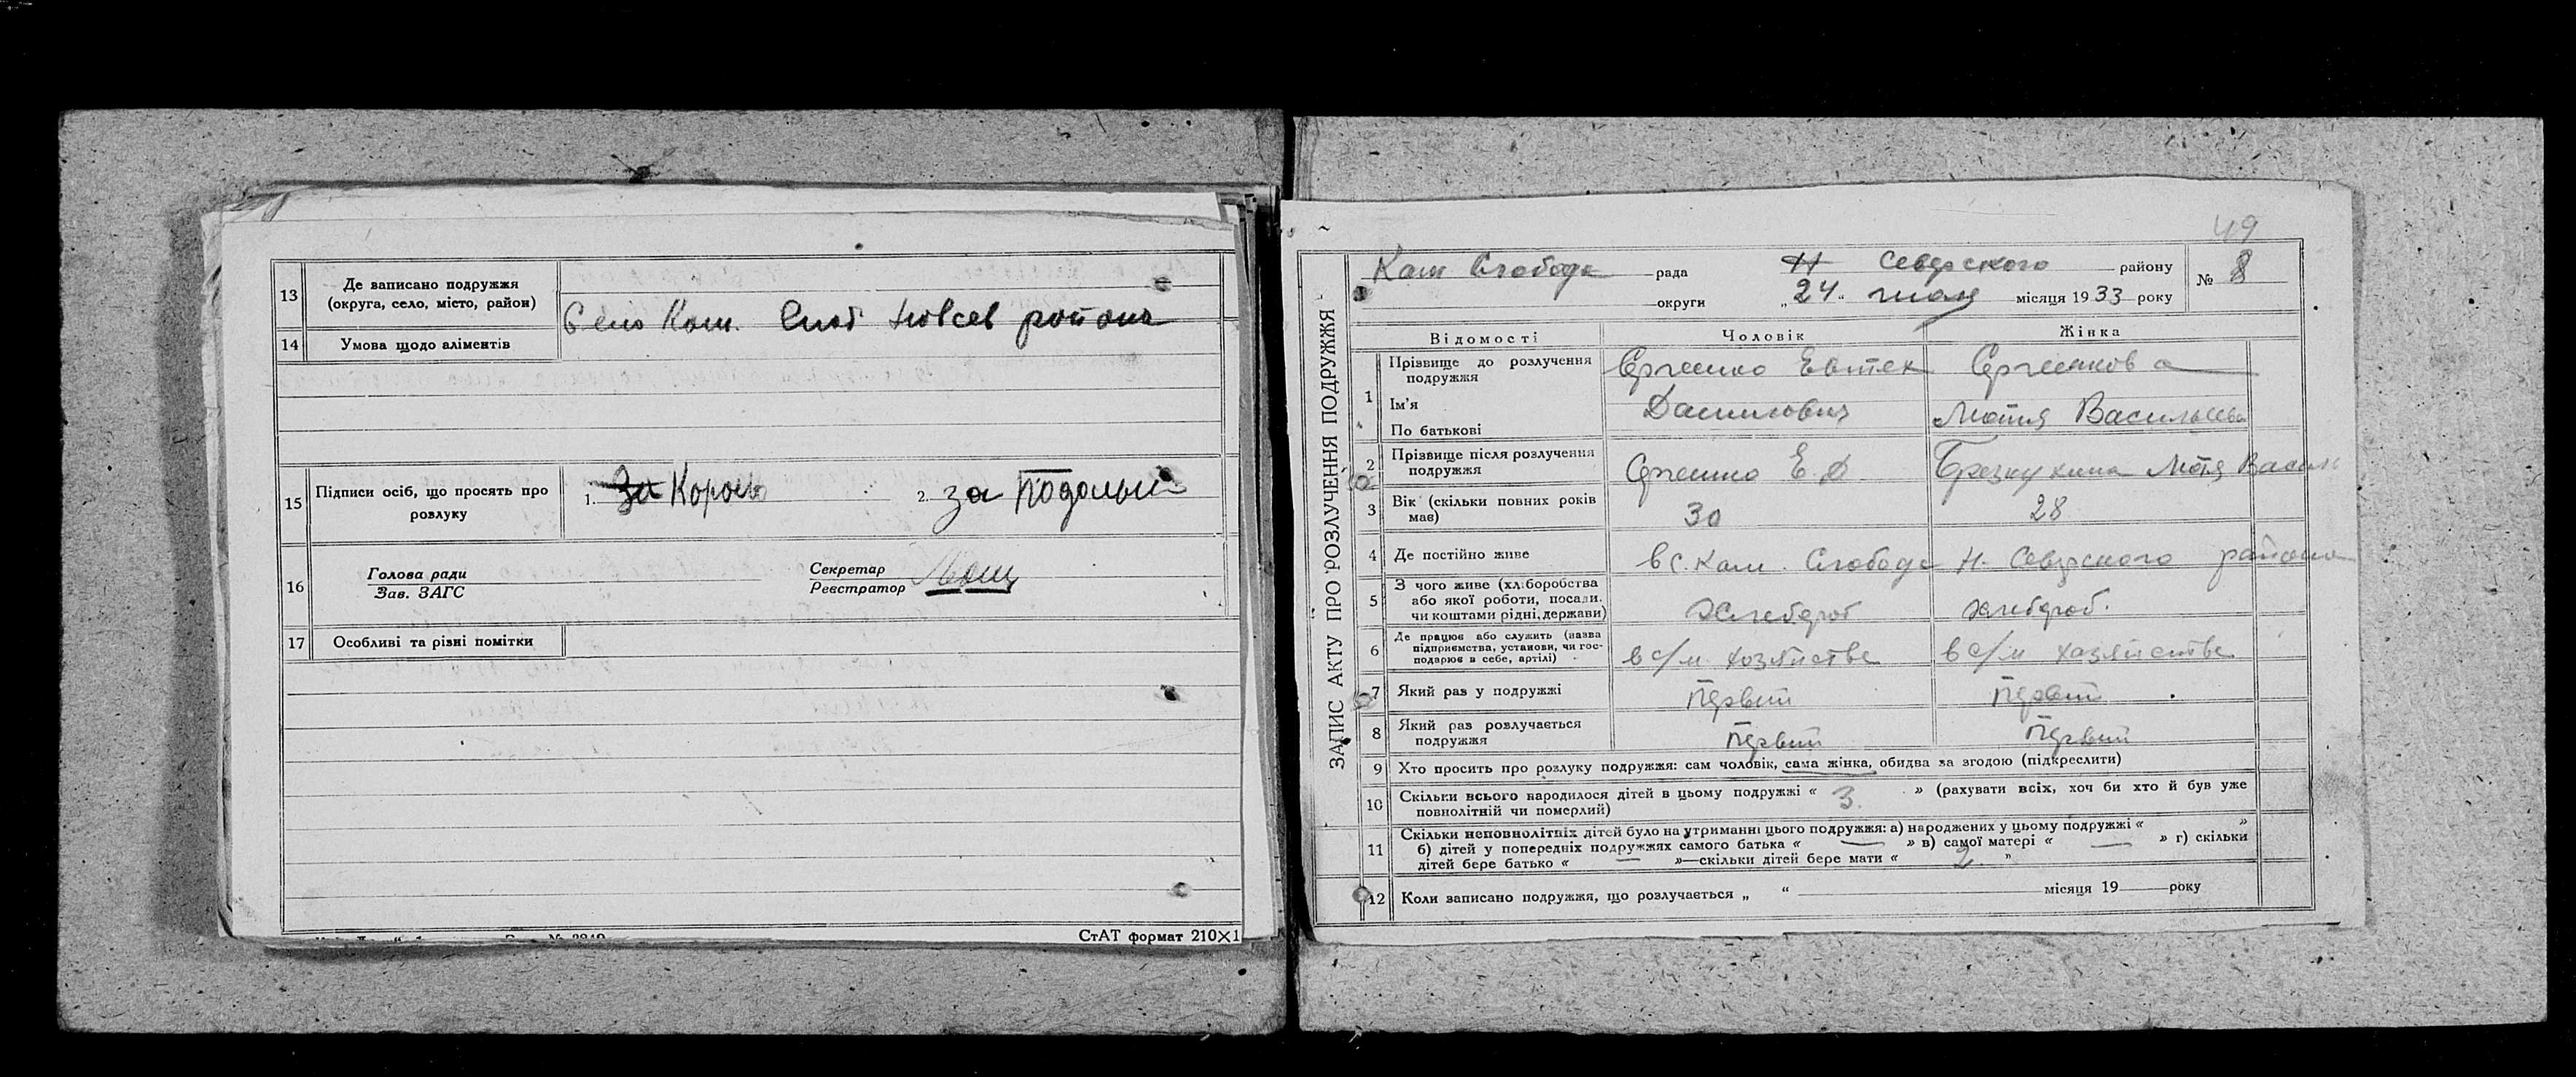 13 Де записано подружжя
(округа, село, місто, район)
Село Кам. Слоб Новсев района
14 Умова щодо аліментів
15 Підписи осіб, що просять про
розлуку
1. За Король 2. за Подольи
16 Голова ради
Зав. ЗАГС
Секретар
Реєстратор
17 Особливі та різні помітки
СтАТ формат 210×1
49
ЗАПИС АКТУ ПРО РОЗЛУЧЕННЯ ПОДРУЖЖЯ
Кам Слобода рада Н Северского району
округи „24“ мая місяця 1933 року
№ 8
Відомості Чоловік Жінка
1 Прізвище до розлучення
подружжя
Ім'я
По батькові
Данилович
Мотя Васильева
2 Прізвище після розлучення
подружжя
Е. Д
Мотя Васил
3 Вік (скільки повних років
має)
30 28
4 Де постійно живе
в с. Кам. Слободе Н. Северского района
5 З чого живе (хліборобства
або якої роботи, посади.
чи коштами рідні, держави)
Хлебороб хлебороб.
6 Де працює або служить (назва
підприємства, установи, чи гос-
подарює в себе, артілі)
в с/м хозяйстве в с/м хазяйстве
7 Який раз у подружжі
Первий Первий
8 Який раз розлучається
подружжя
Первий Первий
9 Хто просить про розлуку подружжя: сам чоловік, сама жінка, обидва за згодою (підкреслити)
10 Скільки всього народилося дітей в цьому подружжі « 3. » (рахувати всіх, хоч би хто й був уже
повнолітній чи померлий)
11 Скільки неповнолітніх дітей було на утриманні цього подружжя: а) народжених у цьому подружжі « »
б) дітей у попередніх подружжях самого батька « — » в) самої матері « — » г) скільки
дітей бере батько « — »—скільки дітей бере мати « 2 »
12 Коли записано подружжя, що розлучається „ “ місяця 19 року